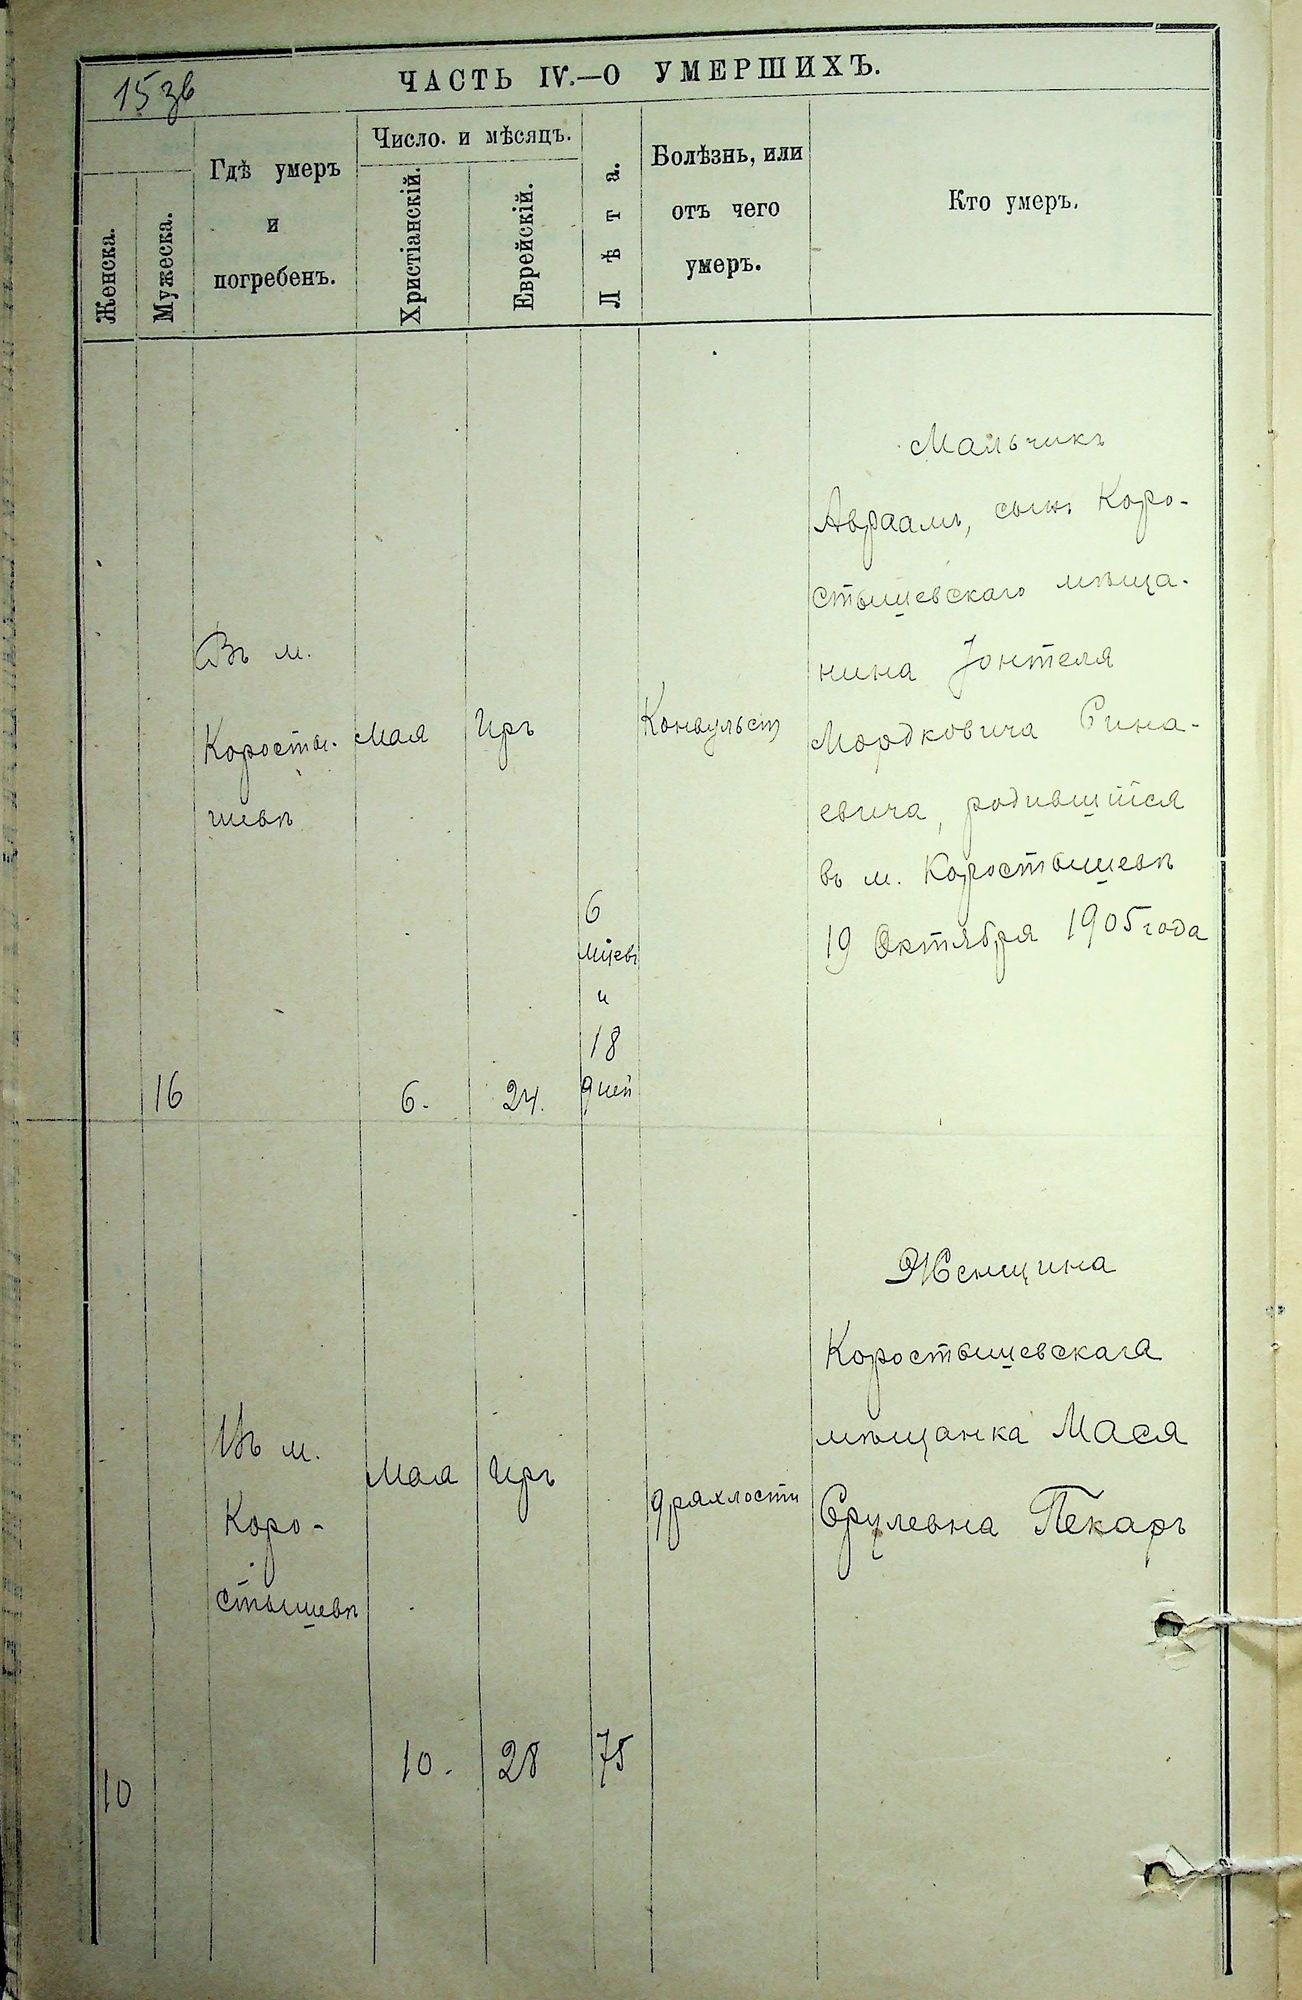 15 зв
ЧАСТЬ IV.—О УМЕРШИХЪ.
Женска.
Мужеска.
Гдѣ умеръ
и
погребенъ.
Число. и мѣсяцъ.
Христіанскій.
Еврейскій.
Лѣта.
Болѣзнь, или
отъ чего
умеръ.
Кто умеръ.
16
Въ м.
Коросты-
шевѣ
Мая
6.
Иръ
24.
6
мцевъ
и
18
дней
Конвульст
Мальчикъ
Авраамъ, сынъ Коро-
стышевскаго мѣща-
нина Іонтеля
Мордковича Сина-
евича, родившійся
въ м. Коростышевѣ
19 Октября 1905 года
10
Въ м.
Коро-
стышевѣ
Мая
10.
Иръ
28
75
дряхлости
Женщина
Коростышевская
мѣщанка Мася
Срулевна Пекаръ